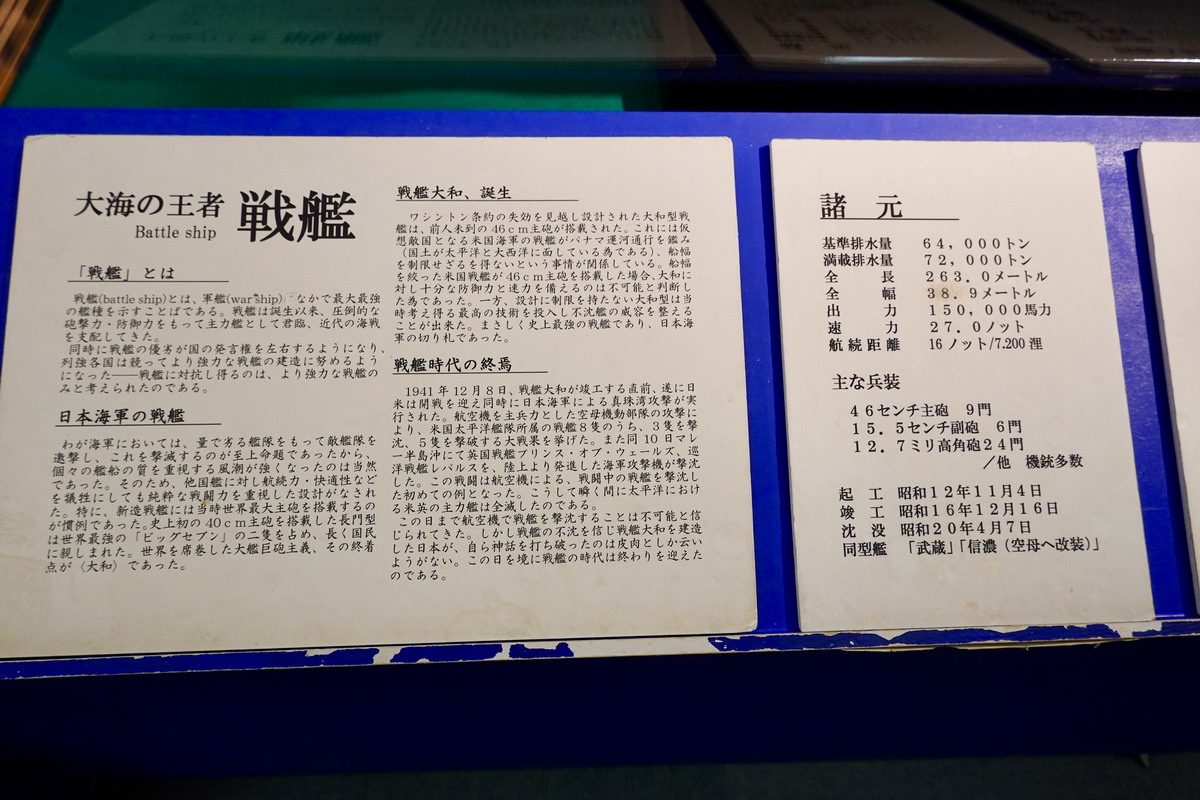 大海の王者 戦艦
Battle ship
「戦艦」とは
戦艦(battle ship)とは、軍艦(war ship) なかで最大最強
の艦種を示すことばである。戦艦は誕生以来、圧倒的な
砲撃力・防御力をもって主力艦として君臨、近代の海戦
を支配してきた。
同時に戦艦の優劣が国の発言権を左右するようになり、
列強各国は競ってより強力な戦艦の建造に努めるよう
になった──戦艦に対抗し得るのは、より強力な戦艦の
みと考えられたのである。
日本海軍の戦艦
わが海軍においては、量で劣る艦隊をもって敵艦隊を
邀撃し、これを撃滅するのが至上命題であったから、
個々の艦船の質を重視する風潮が強くなったのは当然
であった。そのため、他国艦に対し航続力・快適性など
を犠牲にしても純粋な戦闘力を重視した設計がなされ
た。特に、新造戦艦には当時世界最大主砲を搭載するの
が慣例であった。史上初の40cm主砲を搭載した長門型
は世界最強の「ビッグセブン」の二隻を占め、長く国民
に親しまれた。世界を席巻した大艦巨砲主義、その終着
点が〈大和〉であった。
戦艦大和、誕生
ワシントン条約の失効を見越し設計された大和型戦
艦は、前人未到の46cm主砲が搭載された。これには仮
想敵国となる米国海軍の戦艦がパナマ運河通行を鑑み
（国土が太平洋と大西洋に面している為である）、船幅
を制限せざるを得ないという事情が関係している。船幅
を絞った米国戦艦が46cm主砲を搭載した場合、大和に
対し十分な防御力と速力を備えるのは不可能と判断し
た為であった。一方、設計に制限を持たない大和型は当
時考え得る最高の技術を投入し不沈艦の威容を整える
ことが出来た。まさしく史上最強の戦艦であり、日本海
軍の切り札であった。
戦艦時代の終焉
1941年12月8日、戦艦大和が竣工する直前、遂に日
米は開戦を迎え同時に日本海軍による真珠湾攻撃が実
行された。航空機を主兵力とした空母機動部隊の攻撃に
より、米国太平洋艦隊所属の戦艦8隻のうち、3隻を撃
沈、5隻を撃破する大戦果を挙げた。また同10日マレ
ー半島沖にて英国戦艦プリンス・オブ・ウェールズ、巡
洋戦艦レパルスを、陸上より発進した海軍攻撃機が撃沈
した。この戦闘は航空機による、戦闘中の戦艦を撃沈し
た初めての例となった。こうして瞬く間に太平洋におけ
る米英の主力艦は全滅したのである。
この日まで航空機で戦艦を撃沈することは不可能と信
じられてきた。しかし戦艦の不沈を信じ戦艦大和を建造
した日本が、自ら神話を打ち破ったのは皮肉としか云い
ようがない。この日を境に戦艦の時代は終わりを迎えた
のである。
諸元
基準排水量 64，000トン
満載排水量 72，000トン
全長 263．0メートル
全幅 38．9メートル
出力 150，000馬力
速力 27．0ノット
航続距離 16ノット/7,200浬
主な兵装
46センチ主砲 9門
15．5センチ副砲 6門
12．7ミリ高角砲24門
／他 機銃多数
起工 昭和12年11月4日
竣工 昭和16年12月16日
沈没 昭和20年4月7日
同型艦 「武蔵」「信濃（空母へ改装）」